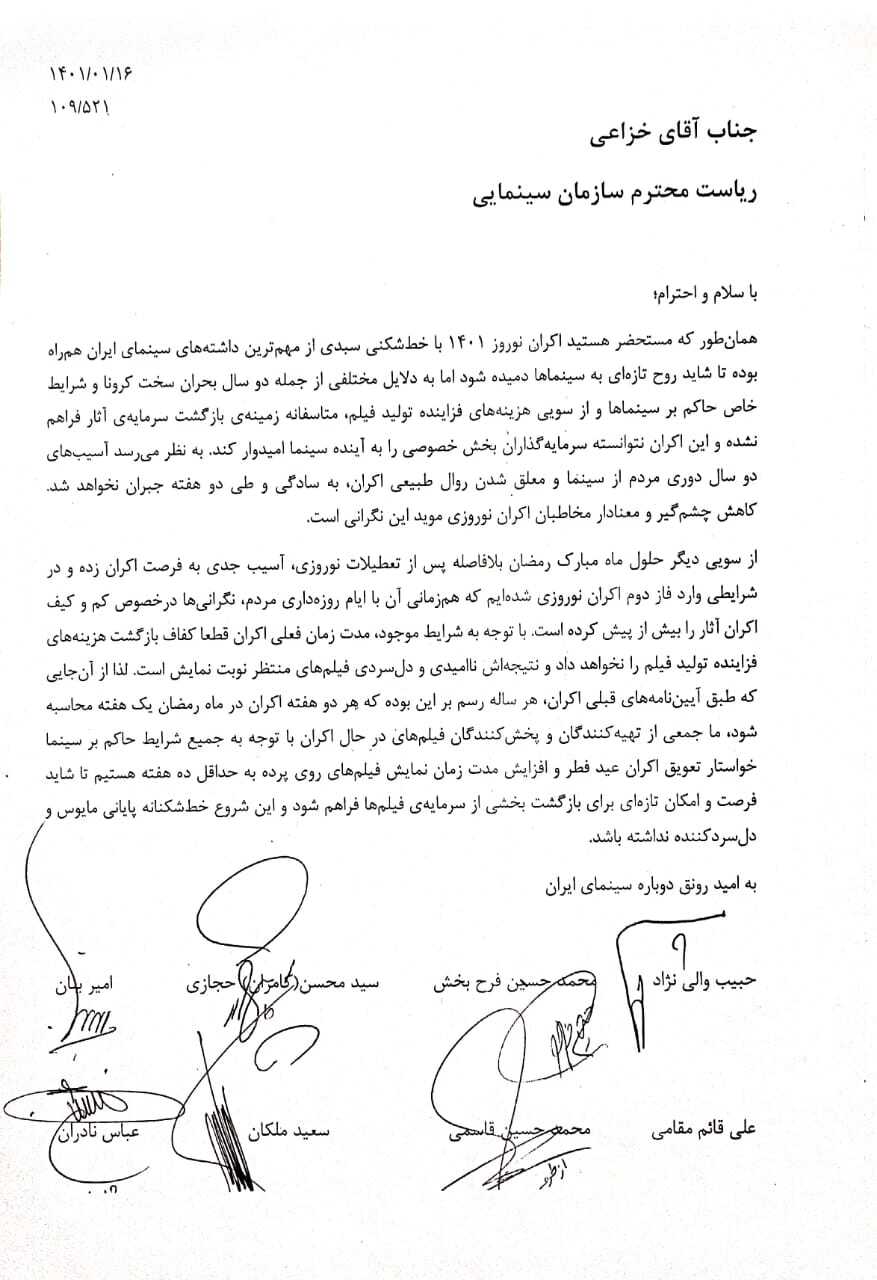 ۱۴۰۱/۰۱/۱۶
۱۰۹/۵۲۱
جناب آقای خزاعی
ریاست محترم سازمان سینمایی
با سلام و احترام؛
همان‌طور که مستحضر هستید اکران نوروز ۱۴۰۱ با خط‌شکنی سبدی از مهم‌ترین داشته‌های سینمای ایران هم‌راه
بوده تا شاید روح تازه‌ای به سینماها دمیده شود اما به دلایل مختلفی از جمله دو سال بحران سخت کرونا و شرایط
خاص حاکم بر سینماها و از سویی هزینه‌های فزاینده تولید فیلم، متاسفانه زمینه‌ی بازگشت سرمایه‌ی آثار فراهم
نشده و این اکران نتوانسته سرمایه‌گذاران بخش خصوصی را به آینده سینما امیدوار کند. به نظر می‌رسد آسیب‌های
دو سال دوری مردم از سینما و معلق شدن روال طبیعی اکران، به سادگی و طی دو هفته جبران نخواهد شد.
کاهش چشم‌گیر و معنادار مخاطبان اکران نوروزی موید این نگرانی است.
از سویی دیگر حلول ماه مبارک رمضان بلافاصله پس از تعطیلات نوروزی، آسیب جدی به فرصت اکران زده و در
شرایطی وارد فاز دوم اکران نوروزی شده‌ایم که هم‌زمانی آن با ایام روزه‌داری مردم، نگرانی‌ها درخصوص کم و کیف
اکران آثار را بیش از پیش کرده است. با توجه به شرایط موجود، مدت زمان فعلی اکران قطعا کفاف بازگشت هزینه‌های
فزاینده تولید فیلم را نخواهد داد و نتیجه‌اش ناامیدی و دل‌سردی فیلم‌های منتظر نوبت نمایش است. لذا از آن‌جایی
که طبق آیین‌نامه‌های قبلی اکران، هر ساله رسم بر این بوده که هر دو هفته اکران در ماه رمضان یک هفته محاسبه
شود، ما جمعی از تهیه‌کنندگان و پخش‌کنندگان فیلم‌های در حال اکران با توجه به جمیع شرایط حاکم بر سینما
خواستار تعویق اکران عید فطر و افزایش مدت زمان نمایش فیلم‌های روی پرده به حداقل ده هفته هستیم تا شاید
فرصت و امکان تازه‌ای برای بازگشت بخشی از سرمایه‌ی فیلم‌ها فراهم شود و این شروع خط‌شکنانه پایانی مایوس و
دل‌سردکننده نداشته باشد.
به امید رونق دوباره سینمای ایران
حبیب والی نژاد محمد حسین فرح بخش سید محسن (کامران) حجازی امیر بنان
علی قائم مقامی محمد حسین قاسمی سعید ملکان عباس نادران
از طرف